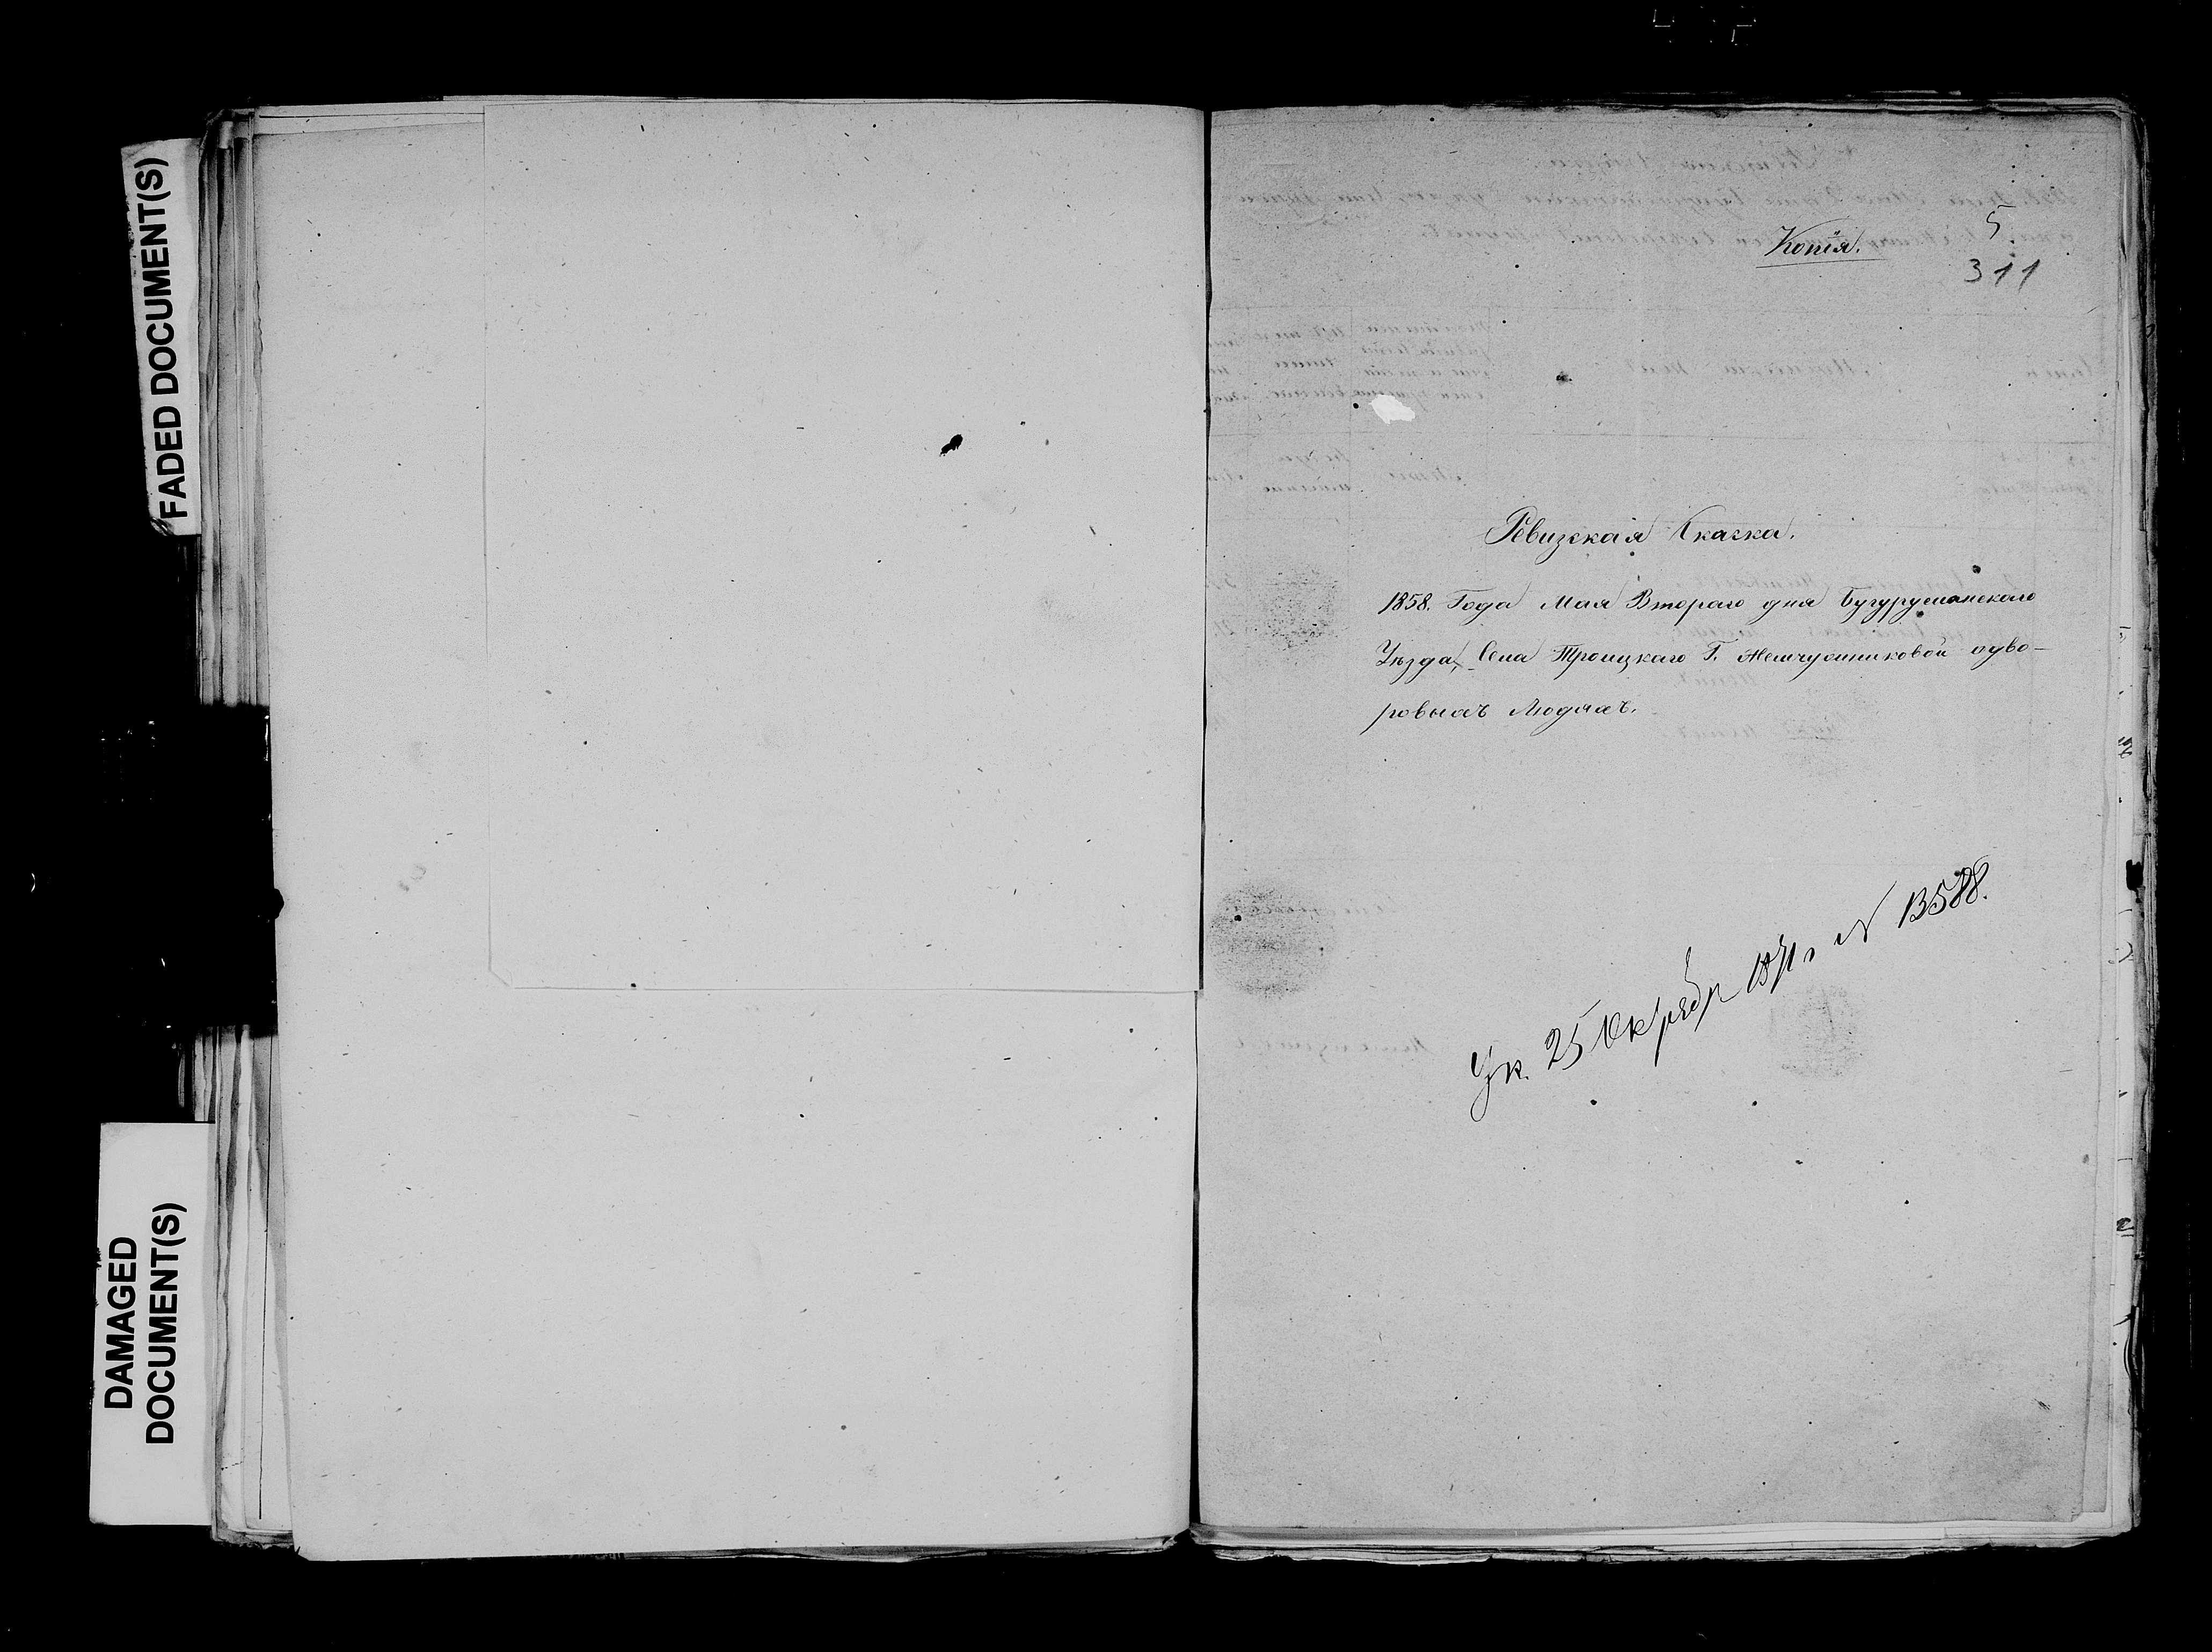 FADED DOCUMENT(S)
DAMAGED
DOCUMENT(S)
5
Копія.
311
Ревизская Сказка.
1858. Года Мая Втораго дня Бугурусланскаго
Уѣзда, Села Троицкаго Г. Жемчужниковой о дво-
ровыхъ людяхъ.
Ук. 25 Октября 1871 г N 13588.